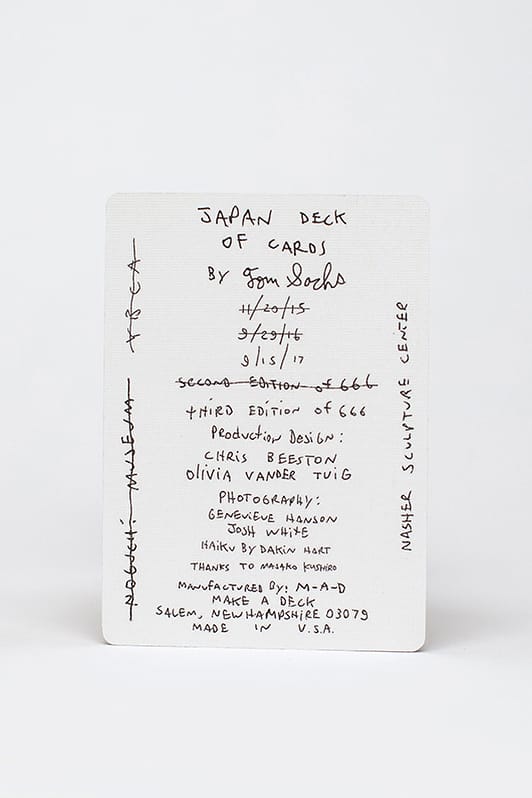 JAPAN DECK
OF CARDS
BY Tom Sachs
11/20/15
9/29/16
9/15/17
SECOND EDITION of 666
tHiRD EDITION of 666
PRODUCTION DESIGN:
CHRIS BEESTON
OliviA VANDER TUIG
PHOTOGRAPHY:
GENEVIEVE HANSON
JOSH WHITE
HAIKU BY DAKIN HART
THANKS TO MASAKO KUSHIRO
MANUFACTURED BY: M-A-D
MAKE A DECK
SALEM, NEW HAMPSHIRE 03079
MADE IN U.S.A.
NOGUCHI MUSEUM YBCA
NASHER SCULPTURE CENTER